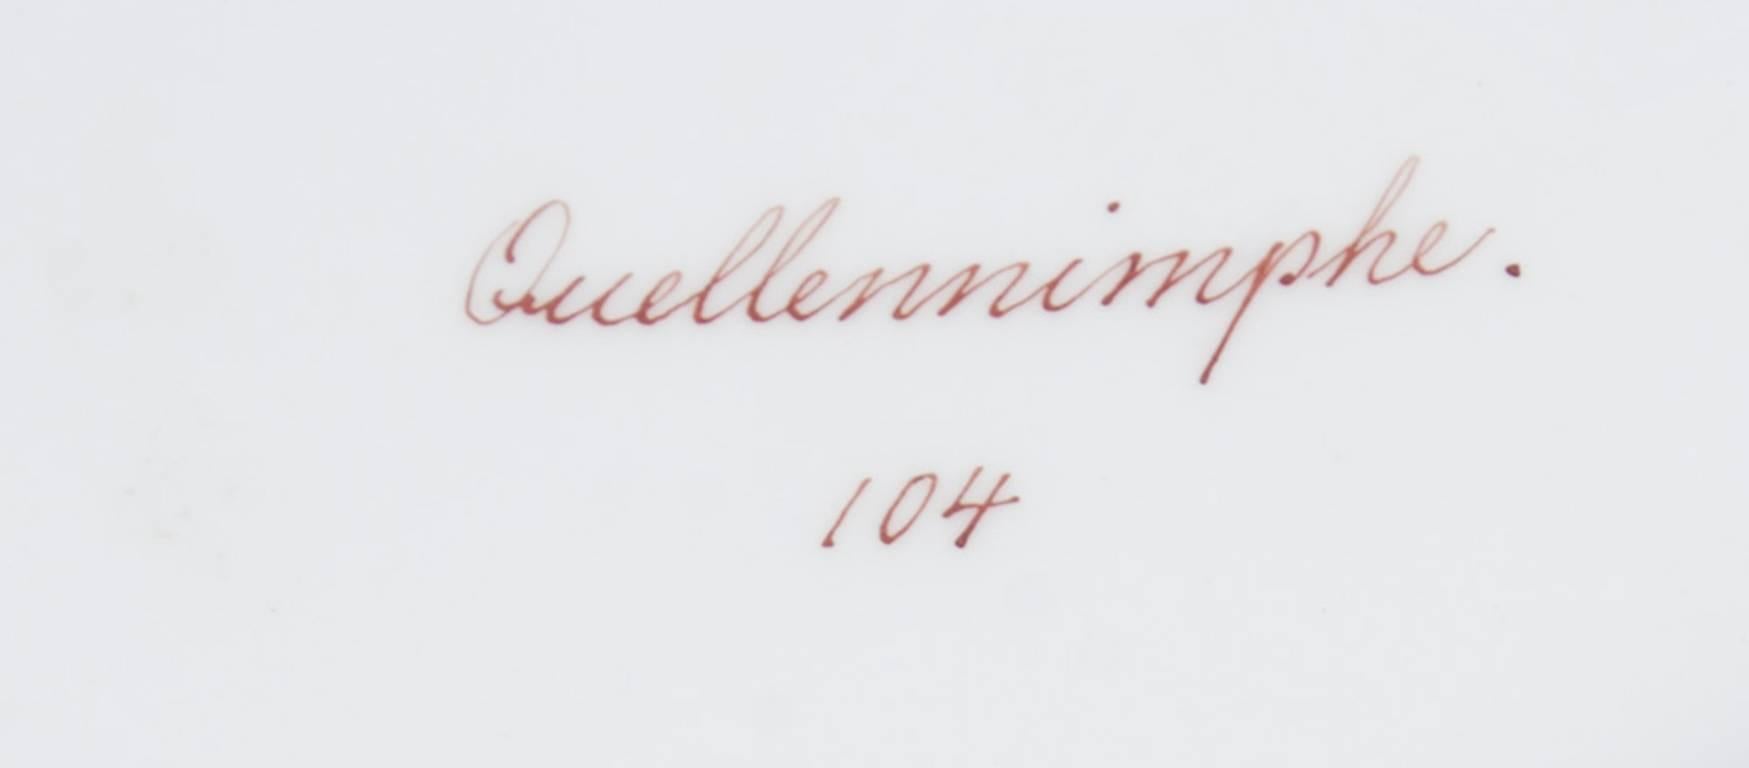 Quellennimphe.
104